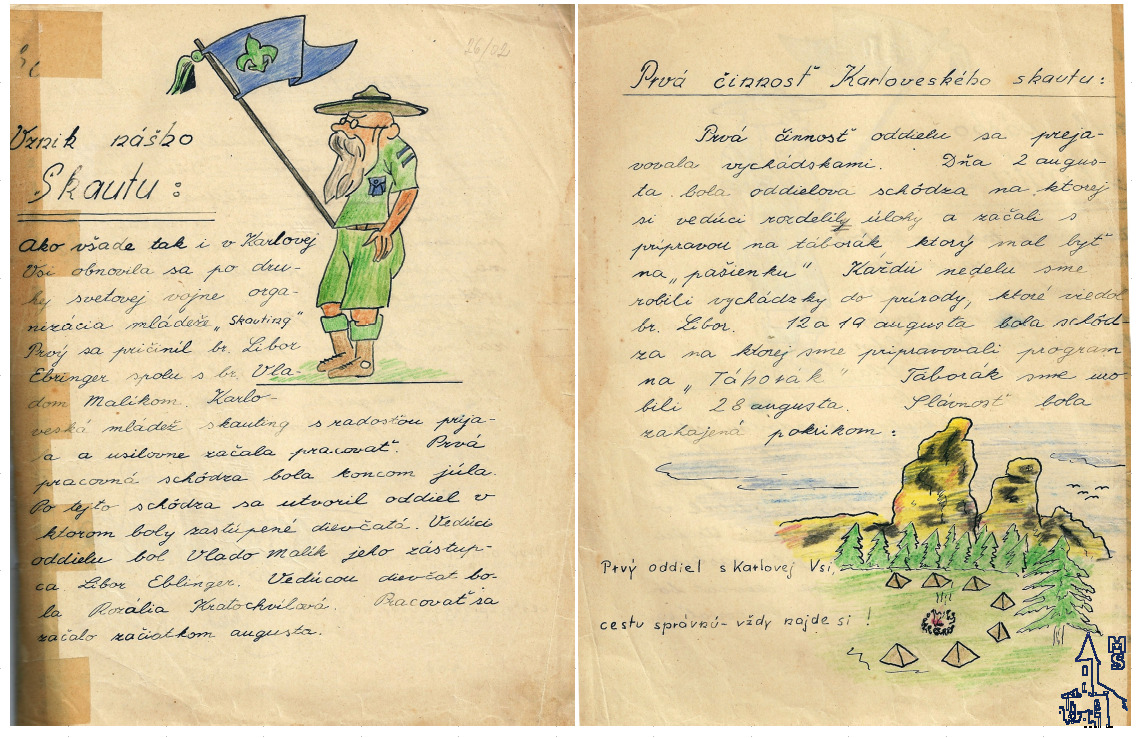 26/02
Vznik nášho
Skautu:
Ako všade tak i v Karlovej
Vsi obnovila sa po dru-
hej svetovej vojne orga-
nizácia mládeže „Skauting"
Prvý sa pričinil br. Libor
Ebringer spolu s br. Vla-
dom Malíkom. Karlo-
veská mládež skauting s radosťou prija-
a a usilovne začala pracovať. Prvá
pracovná schôdza bola koncom júla.
Po tejto schôdza sa utvoril oddiel v
ktorom boly zastúpené dievčatá. Vedúci
oddielu bol Vlado Malík jeho zástup-
ca Libor Eblinger. Vedúcou dievčat bo-
la Rozália Kratochvílová. Pracovať sa
začalo začiatkom augusta.
Prvá činnosť Karloveského skautu:
Prvá činnosť oddielu sa preja-
vovala vychádskami. Dňa 2 augus-
ta bola oddielova schôdza na ktorej
si vedúci rozdelily úlohy a začali s
prípravou na táborák ktorý mal byť
na „pašienku" Každú nedelu sme
robili vychádzky do prírody, ktoré viedol
br. Libor. 12 a 19 augusta bola schôd-
za na ktorej sme pripravovali program
na „Táborák" Táborák sme uro-
bili 28 augusta. Slávnosť bola
zahajená pokrikom:
Prvý oddiel s Karlovej Vsi,
cestu správnú - vždy najde si !
MS